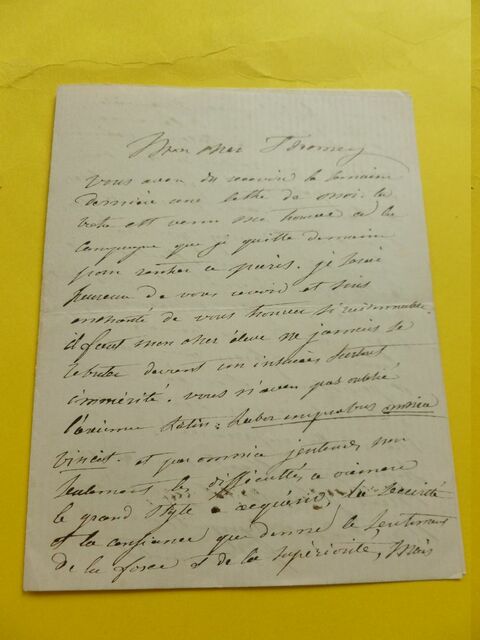 Mon cher Thromey
vous aven du recevoir la semaine
dernière une lettre de moi. la
votre est venu me trouver a la
campagne que je quitte demain
pour rentrer a paris. je serai
heureux de vous revoir et suis
enchanté de vous trouver si raisonnable.
il faut mon cher élève ne jamais se
rebuter devant un insuccès surtout
immérité. vous n'aven pas oublié
l'ancienne latin: Labor improbus omnia
vincit. et par omnia j'entends non
seulement les difficultés a vaincre
le grand style a acquérir, la sécurité
et la confiance que donne le sentiment
de la force et de la supériorité, Mais